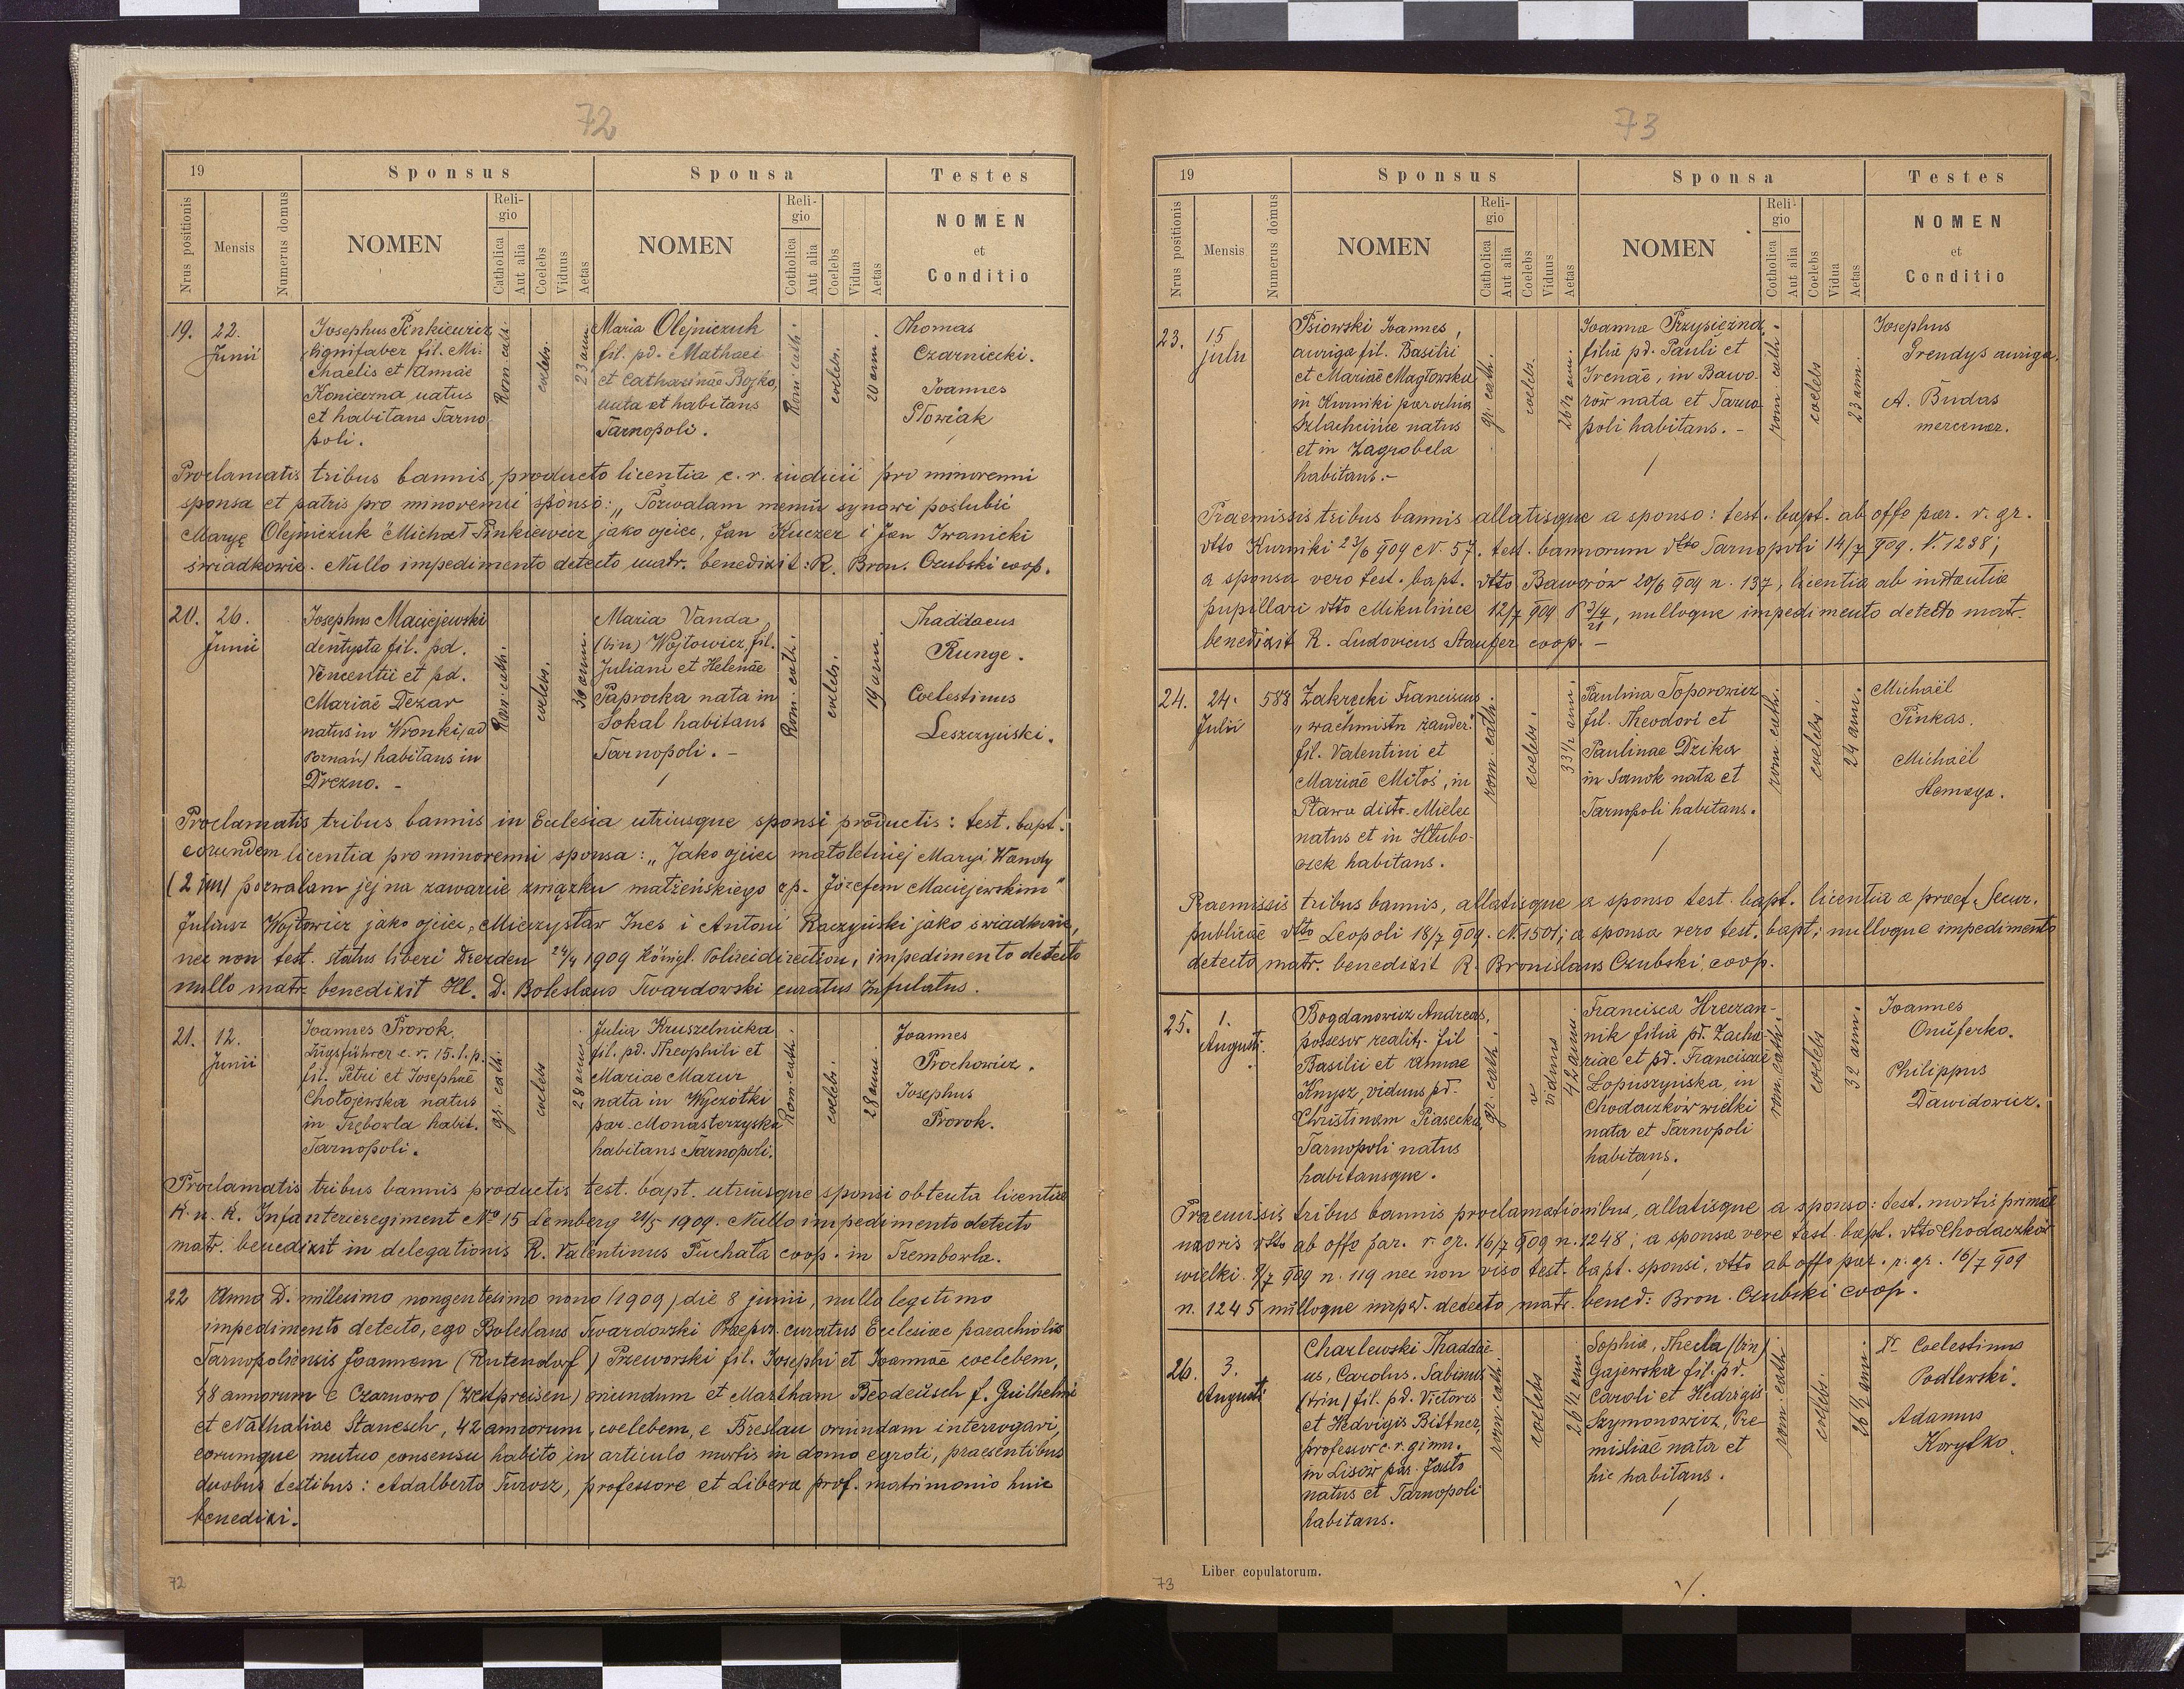 72
19
Sponsus
Sponsa
Testes
Nrus positionis
Mensis
Numerus domus
NOMEN
Religio
Catholica
Aut alia
Coelebs
Viduus
Aetas
NOMEN
Religio
Cotholica
Aut alia
Coelebs
Vidua
Aetas
NOMEN
et
Conditio
19. 22. Junii
Josephus Pinkiewicz
lignifaber fil. Mi-
chaelis et Annae
Konieczna natus
et habitans Tarno
poli.
Rom. cath.
coelebs.
23 ann.
Maria Olejniczuk
fil. pd. Mathaei
et Catharinae Bojko,
nata et habitans
Tarnopoli.
Rom. cath.
coelebs.
20 ann.
Thomas
Czarniecki.
Joannes
Słowiak
Proclamatis tribus bannis, producto licentia c. r. iudicii pro minorenni
sponsa et patris pro minorenni sponso: „Pozwalam memu synowi poślubić
Maryę Olejniczuk" Michał Pinkiewicz jako ojciec, Jan Kuczer i Jan Iwanicki
świadkowie. Nullo impedimento detecto matr. benedixit: R. Bron. Czubski coop.
20. 26. Junii
Josephus Maciejewski
dentysta fil. pd.
Vincentii et pd.
Mariae Dezar
natus in Wronki (ad
Poznań) habitans in
Drezno. -
Rom. cath.
coelebs.
36 ann.
Maria Vanda
(bin) Wojtowicz fil.
Juliani et Helenae
Paprocka nata in
Sokal habitans
Tarnopoli. -
Rom. cath.
coelebs.
19 ann.
Thaddaeus
Runge.
Coelestinus
Leszczyński.
Proclamatis tribus bannis in Eclesia utriusque sponsi productis: test. bapt.
eorundem licentia pro minorenni sponsa: „Jako ojciec małoletniej Maryi Wandy
(2 im) pozwalam jej na zawarcie związku małżeńskiego z p. Józefem Maciejewskim"
Juliusz Wojtowicz jako ojciec, Mieczysław Ines i Antoni Raczyński jako świadkowie,
nec non test. status liberi Dresden 24/4 1909 Königl. Polizeidirection, impedimento detecto
nullo matr. benedixit Ill. D. Boleslaus Twardowski curatus Infulatus.
21. 12. Junii
Joannes Prorok
Zugsführer c. r. 15. l. p.
fil. Petri et Josephae
Chotojewska natus
in Trębowla habit.
Tarnopoli.
gr. cath.
coelebs
28 ann.
Julia Kruszelnicka
fil. pd. Theophili et
Mariae Mazur
nata in Wyczółki
par. Monasterzyska
habitans Tarnopoli.
Rom. cath.
coelebs.
28 ann.
Joannes
Prochowicz.
Josephus
Prorok.
Proclamatis tribus bannis productis test. bapt. utriusque sponsi obtenta licentia
K. u. K. Infanterieregiment No 15 Lemberg 21/5 1909. Nullo impedimento detecto
matr. benedixit in delegationis R. Valentinus Puchała coop. in Trembowla.
22 Anno D. millesimo nongentesimo nono (1909) die 8 junii, nullo legitimo
impedimento detecto, ego Boleslaus Twardowski Praepos. curatus Ecclesiae parachialis
Tarnopoliensis Joannem (Rutendorf) Przeworski fil. Josephi et Joannae coelebem,
48 annorum e Czarnowo (Westpreisen) oriundum et Martham Beodeusch f. Guilhelmi
et Nathaliae Stanesch, 42 annorum, coelebem, e Breslau oriundam interrogavi,
eorumque mutuo consensu habito, in articulo mortis in domo egroti, praesentibus
duobus testibus: Adalberto Turosz, professore et Libera prof. matrimonio hunc
benedixi.
72
73
19
Sponsus
Sponsa
Testes
Nrus positionis
Mensis
Numerus domus
NOMEN
Religio
Catholica
Aut alia
Coelebs
Viduus
Aetas
NOMEN
Religio
Cotholica
Aut alia
Coelebs
Vidua
Aetas
NOMEN
et
Conditio
23. 15 Julii
Psiowski Joannes,
auriga fil. Basilii
et Mariae Magłowska
in Kurniki parochia
Szlachcinie natus
et in Zagrobela
habitans.-
gr. cath.
coelebs.
26 1/2 ann.
Joanna Przysiężna,
filia pd. Pauli et
Irenae, in Bawo-
rów nata et Tarno
poli habitans. -
rom. cath.
coelebs
23 ann.
Josephus
Prendys auriga.
A. Budas
mercenar.
Praemissis tribus bannis allatisque a sponso: test. bapt. ab offo par. r. gr.
dtto Kurniki 23/6 909 N. 57. test. bannorum dtto Tarnopoli 14/7 909. N. 1238;
a sponsa vero test. bapt. dtto Baworów 20/6 909 n. 137, licentia ab instantia
pupillari dtto Mikulince 12/7 909 P 3/4/21, nulloque impedimento detecto matr.
benedixit R. Ludovicus Staufer coop. -
24. 24. Julii
588
Zakrzcki Franciscus
„wachmistrz żander."
fil. Valentini et
Mariae Miłoś, in
Pławo distr. Mielec
natus et in Hłubo-
czek habitans.
rom. cath.
coelebs.
33 1/2 ann.
Paulina Toporowicz
fil. Theodori et
Paulinae Dzika
in Sanok nata et
Tarnopoli habitans.
rom. cath.
coelebs.
24 ann.
Michaël
Pinkas.
Michaël
Hemaga.
Praemissis tribus bannis, allatisque a sponso test. bapt. licentia a praef. Secur.
publicae dtto Leopoli 18/7 909. N. 1501; a sponsa vero test. bapt; nulloque impedimento
detecto matr. benedixit R. Bronislaus Czubski, coop.
25. 1. Augusti.
Bogdanowicz Andreas,
possesor realit. fil
Basilii et Annae
Knysz, viduus pd.
Christinam Piasecka,
Tarnopoli natus
habitansque.
gr. cath.
viduus
42 ann.
Francisca Hreczan-
nik filia pd. Zacha
riae et pd. Franciscae
Łopuszyńska, in
Chodaczków wielki
nata et Tarnopoli
habitans.
rom. cath.
coelebs
32 ann.
Joannes
Onuferko.
Philippus
Dawidowicz.
Praemissis tribus bannis proclamationibus, allatisque a sponso: test. mortis primae
uxoris dtto ab offo par. r. gr. 16/7 909 n. 1248; a sponsa vero test. bapt. dtto Chodaczków
wielki 8/7 909 n. 119 nec non viso test. bapt. sponsi, dtto ab offo par. r. gr. 16/7 909
n. 1245 nulloque imped. detecto, matr. bened: Bron. Czubski coop.
26. 3. Augusti
Charlewski Thaddae-
us, Carolus, Sabinus
(trin) fil. pd. Victoris
et Hedvigis Bittner,
professor c. r. gimn.
in Lisów par. Jasło
natus et Tarnopoli
habitans.
rom. cath.
coelebs
26 1/2 ann.
Sophia, Thecla (bin)
Gajewska fil. pd.
Caroli et Hedvigis
Szymonowicz, Pre-
misliae nata et
hic habitans.
rom. cath
coelebs.
26 1/2 ann.
Dr. Coelestinus
Podlewski.
Adamus
Korytko.
Liber copulatorum.
73